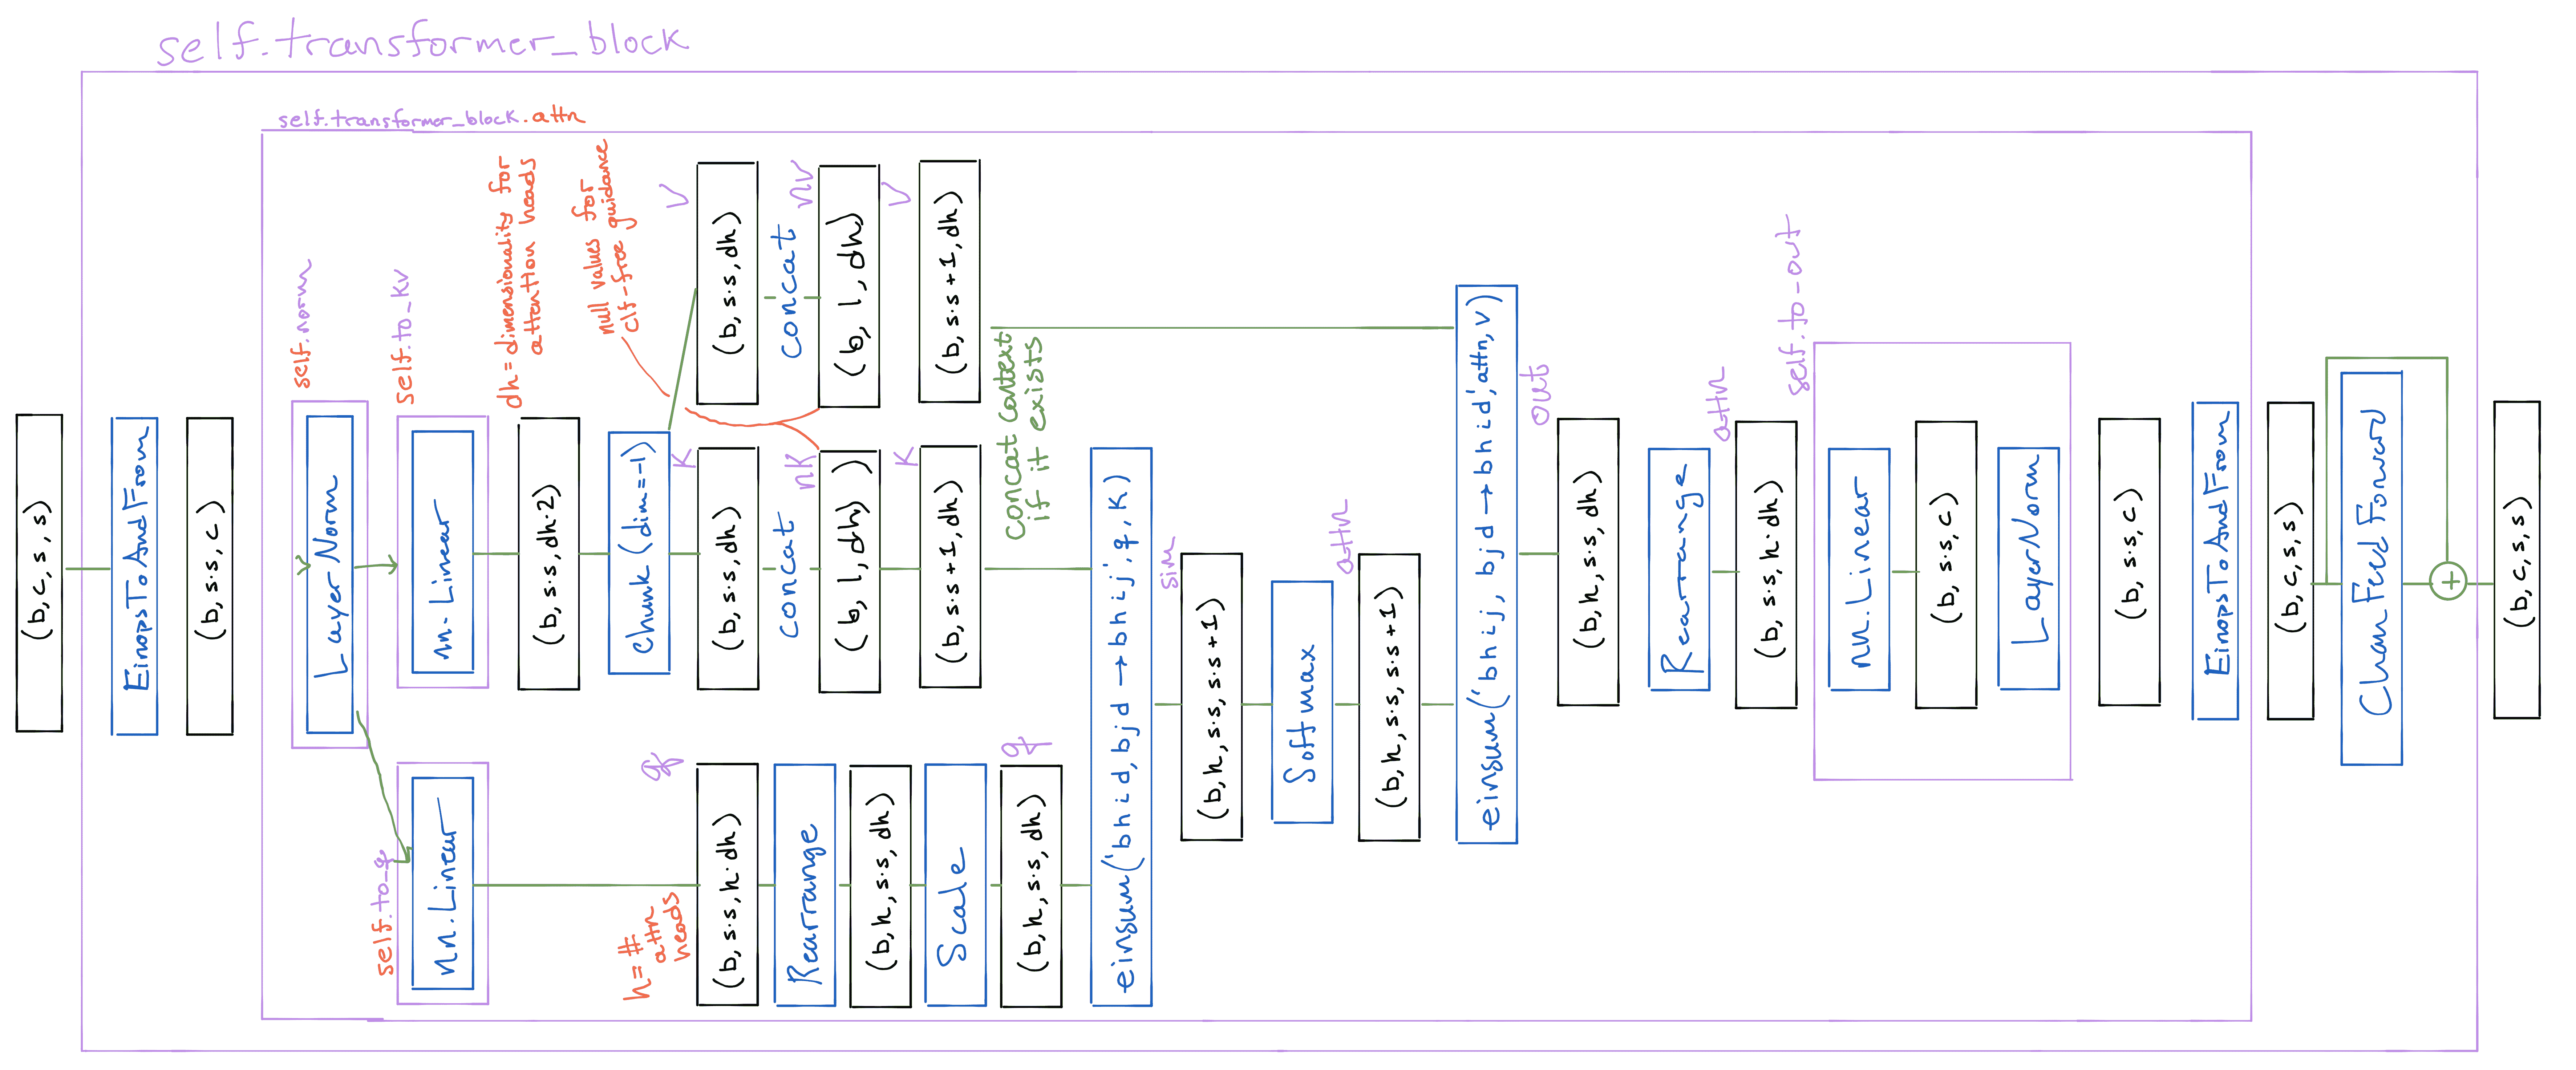 self.transformer_block
self.transformer_block.attn
(b, c, s, s)
EinopsToAndFrom
(b, s·s, c)
self.norm
LayerNorm
self.to_kv
nn.Linear
self.to_q
nn.Linear
dh = dimensionality for
attention heads
(b, s·s, dh·2)
chunk(dim=-1)
null values for
clf-free guidance
V
(b, s·s, dh)
concat
nV
(b, 1, dh)
V
(b, s·s+1, dh)
K
(b, s·s, dh)
concat
nK
(b, 1, dh)
K
(b, s·s+1, dh)
concat context
if it exists
h = #
attn
heads
q
(b, s·s, h·dh)
Rearrange
(b, h, s·s, dh)
Scale
q
(b, h, s·s, dh)
einsum('bhid, bjd → bhij', q, K)
sim
(b, h, s·s, s·s+1)
Softmax
attn
(b, h, s·s, s·s+1)
einsum('bhij, bjd → bhid', attn, V)
out
(b, h, s·s, dh)
Rearrange
attn
(b, s·s, h·dh)
self.to-out
nn.Linear
(b, s·s, c)
LayerNorm
(b, s·s, c)
EinopsToAndFrom
(b, c, s, s)
ChanFeedForward
+
(b, c, s, s)